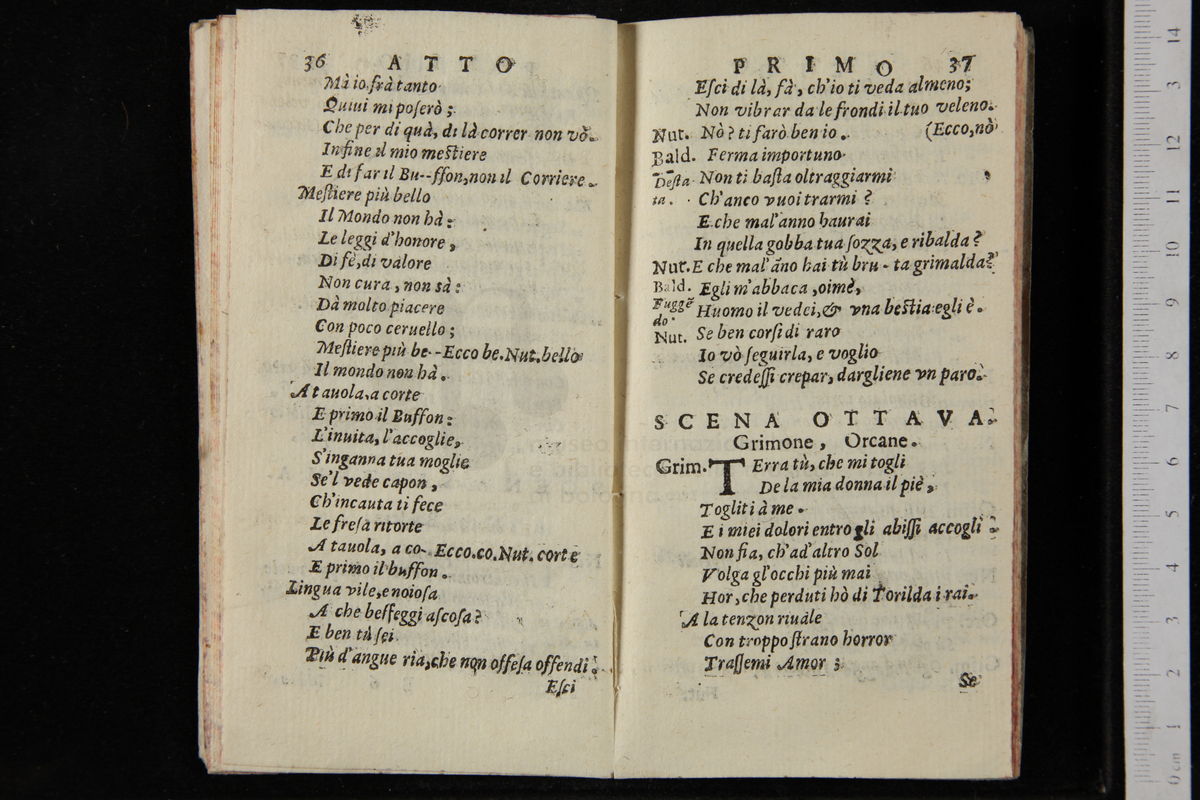 36 ATTO
Mà io frà tanto
Quiui mi poserò;
Che per di quà, di là correr non vò.
Infine il mio mestiere
E di far il Bu--ffon, non il Corriere.
Mestiere più bello
Il Mondo non hà:
Le leggi d'honore,
Di fè, di valore
Non cura, non sà:
Dà molto piacere
Con poco ceruello;
Mestiere più be--Ecco be. Nut. bello
Il mondo non hà.
A tauola, a corte
E primo il Buffon:
L'inuita, l'accoglie,
S'inganna tua moglie
Se'l vede capon,
Ch'incauta ti fece
Le fresa ritorte
A tauola, a co-. Ecco.co. Nut. corte
E primo il buffon.
Lingua vile, e noiosa
A che beffeggi ascosa?
E ben tù sei
Più d'angue ria, che non offesa offendi:
Esci
PRIMO 37
Esci di là, fà, ch'io ti veda almeno;
Non vibrar da le frondi il tuo veleno.
Nut. Nò? ti farò ben io. (Ecco, nò
Bald. Ferma importuno
Desta Non ti basta oltraggiarmi
ta. Ch'anco vuoi trarmi?
E che mal'anno haurai
In quella gobba tua sozza, e ribalda?
Nut. E che mal'ãno hai tù bru-ta grimalda?
Bald. Egli m'abbaca, oimè,
Fuggẽ Huomo il vedei, & vna bestia egli è.
do.
Nut. Se ben corsi di raro
Io vò seguirla, e voglio
Se credessi crepar, dargliene vn paro.
SCENA OTTAVA.
Grimone, Orcane.
Grim. TErra tù, che mi togli
De la mia donna il piè,
Togliti à me.
E i miei dolori entro gli abissi accogli:
Non fia, ch'ad'altro Sol
Volga gl'occhi più mai
Hor, che perduti hò di Torilda i rai.
A la tenzon riuale
Con troppo strano horror
Trassemi Amor;
Se